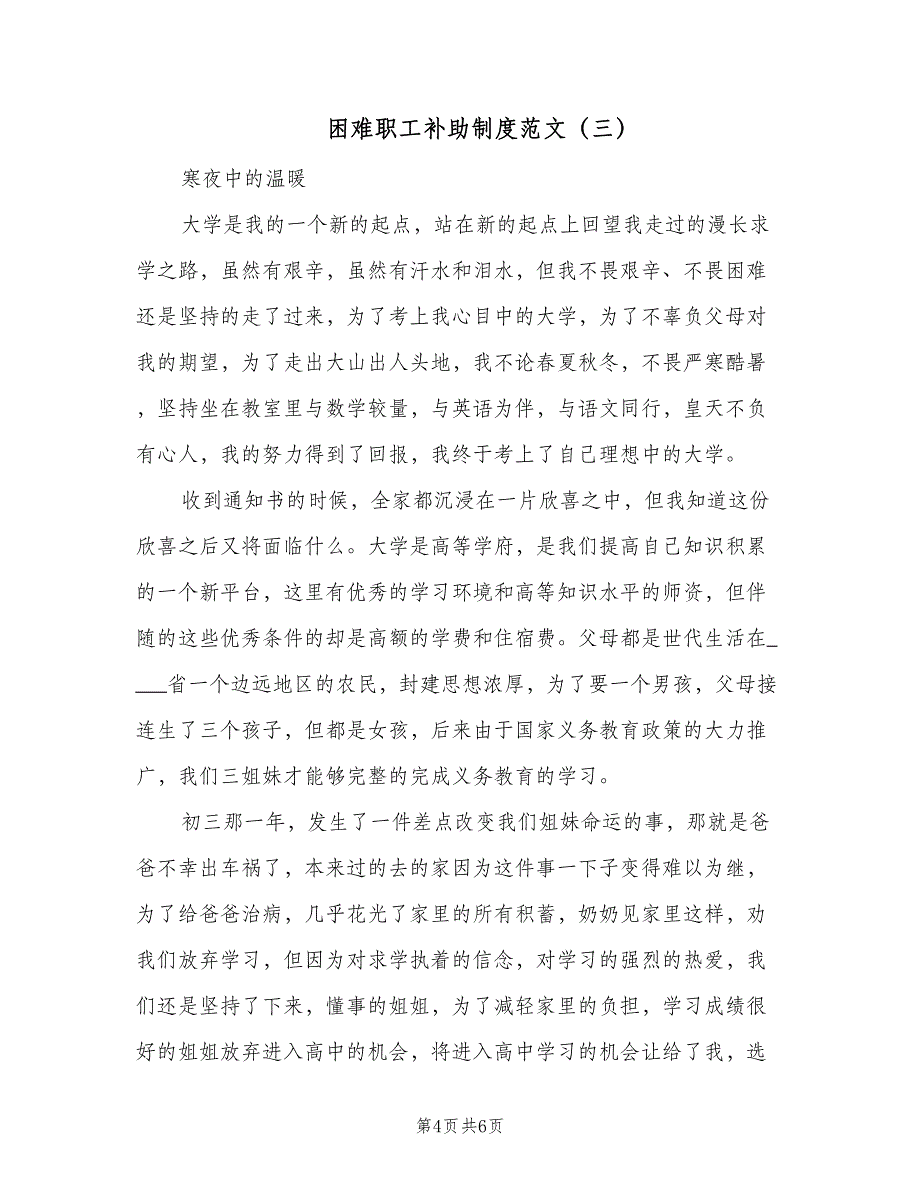 困难职工补助制度范文（三）
寒夜中的温暖
大学是我的一个新的起点，站在新的起点上回望我走过的漫长求
学之路，虽然有艰辛，虽然有汗水和泪水，但我不畏艰辛、不畏困难
还是坚持的走了过来，为了考上我心目中的大学，为了不辜负父母对
我的期望，为了走出大山出人头地，我不论春夏秋冬，不畏严寒酷暑
，坚持坐在教室里与数学较量，与英语为伴，与语文同行，皇天不负
有心人，我的努力得到了回报，我终于考上了自己理想中的大学。
收到通知书的时候，全家都沉浸在一片欣喜之中，但我知道这份
欣喜之后又将面临什么。大学是高等学府，是我们提高自己知识积累
的一个新平台，这里有优秀的学习环境和高等知识水平的师资，但伴
随的这些优秀条件的却是高额的学费和住宿费。父母都是世代生活在_
___省一个边远地区的农民，封建思想浓厚，为了要一个男孩，父母接
连生了三个孩子，但都是女孩，后来由于国家义务教育政策的大力推
广，我们三姐妹才能够完整的完成义务教育的学习。
初三那一年，发生了一件差点改变我们姐妹命运的事，那就是爸
爸不幸出车祸了，本来过的去的家因为这件事一下子变得难以为继，
为了给爸爸治病，几乎花光了家里的所有积蓄，奶奶见家里这样，劝
我们放弃学习，但因为对求学执着的信念，对学习的强烈的热爱，我
们还是坚持了下来，懂事的姐姐，为了减轻家里的负担，学习成绩很
好的姐姐放弃进入高中的机会，将进入高中学习的机会让给了我，选
第4页共6页